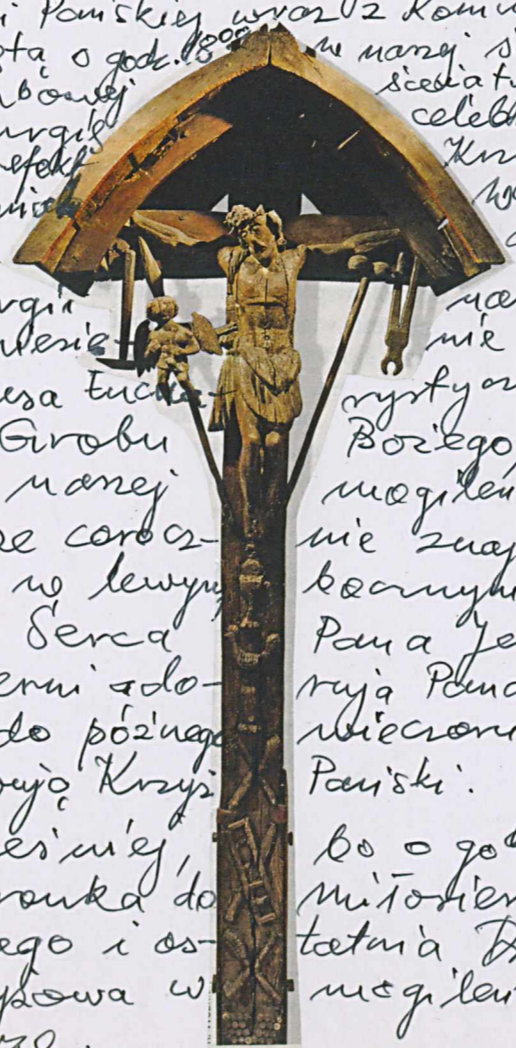 i Pańskiej wraz z Komu
ta o godz. 18⁰⁰ w naszej ś
bowej świat
urgię celeb
refekt Krz
rgii nas
miesie- nie
usa Eucha- rystycz
Grobu Bożego,
naszej mogileń
że corocz- nie znaj
w lewym bocznym
Serca Pana Je
erni ado- rują Pana
do późnego wieczoru
ują Krzyż Pański.
eśniej, bo o go
ronka do miłosier
ego i os- tatnia D
yżowa w mogileń